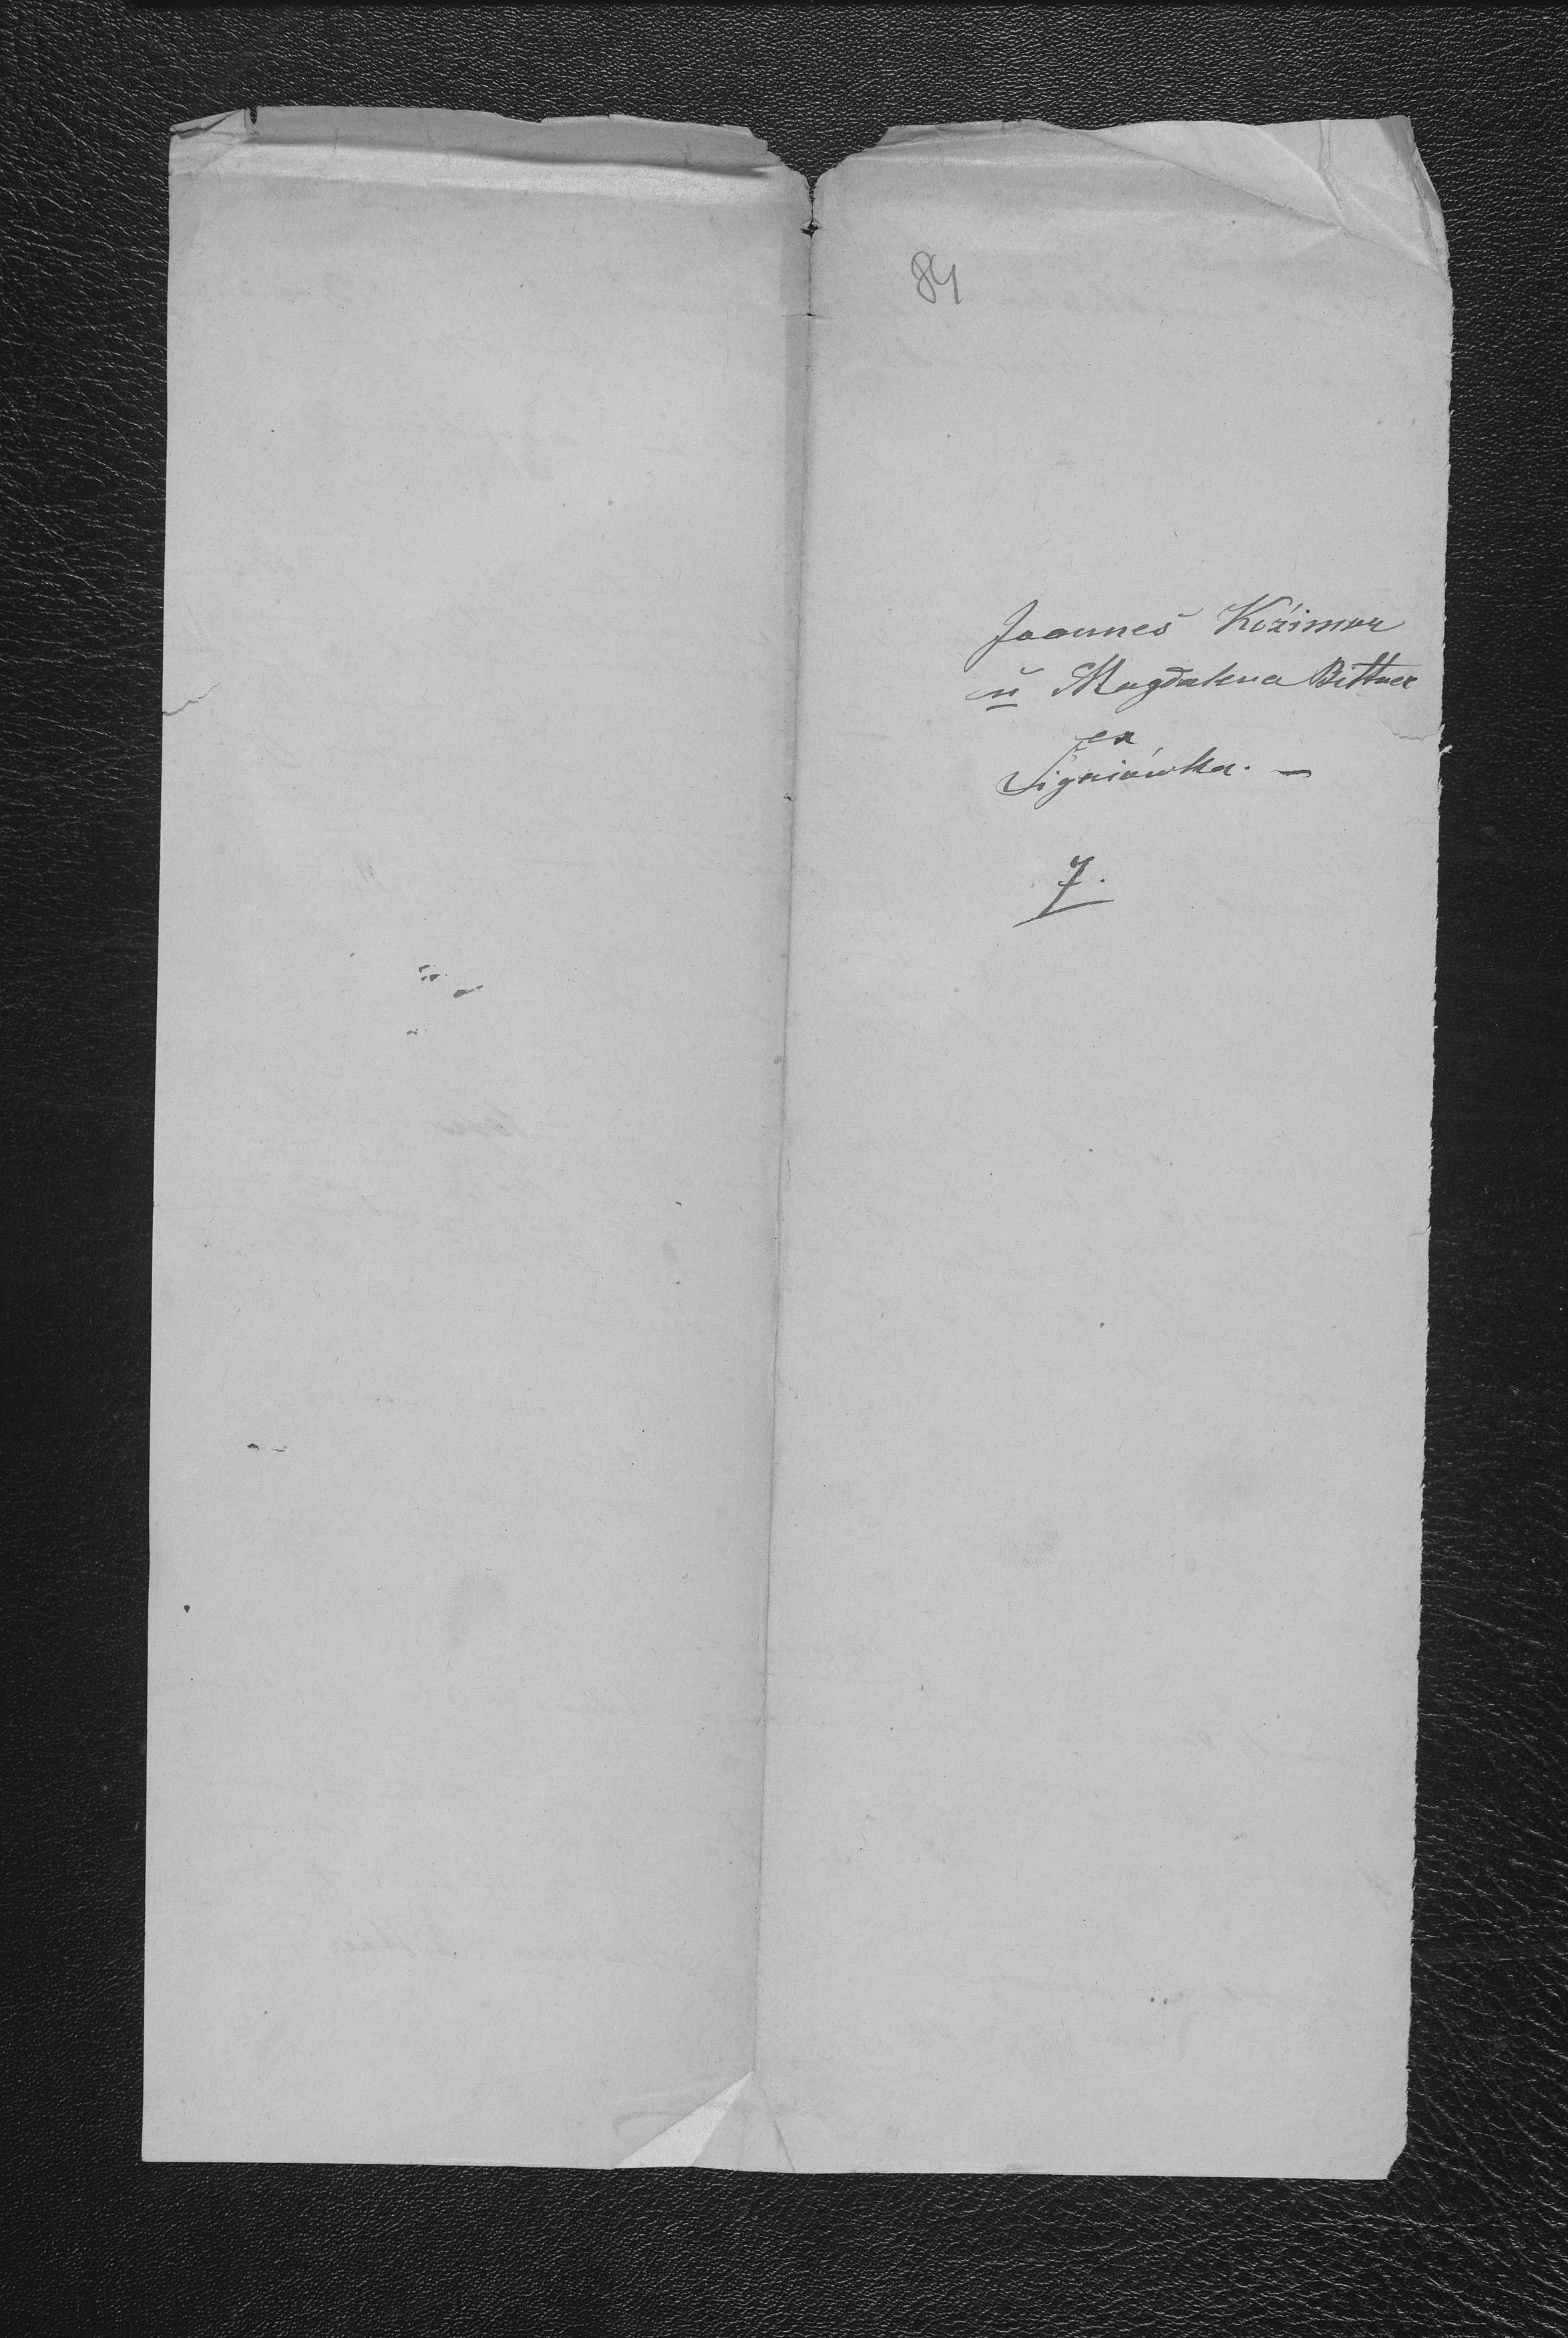 84
Joannes Kozimor
u Magdalena Bittner
ex
Signiówka. —
7.